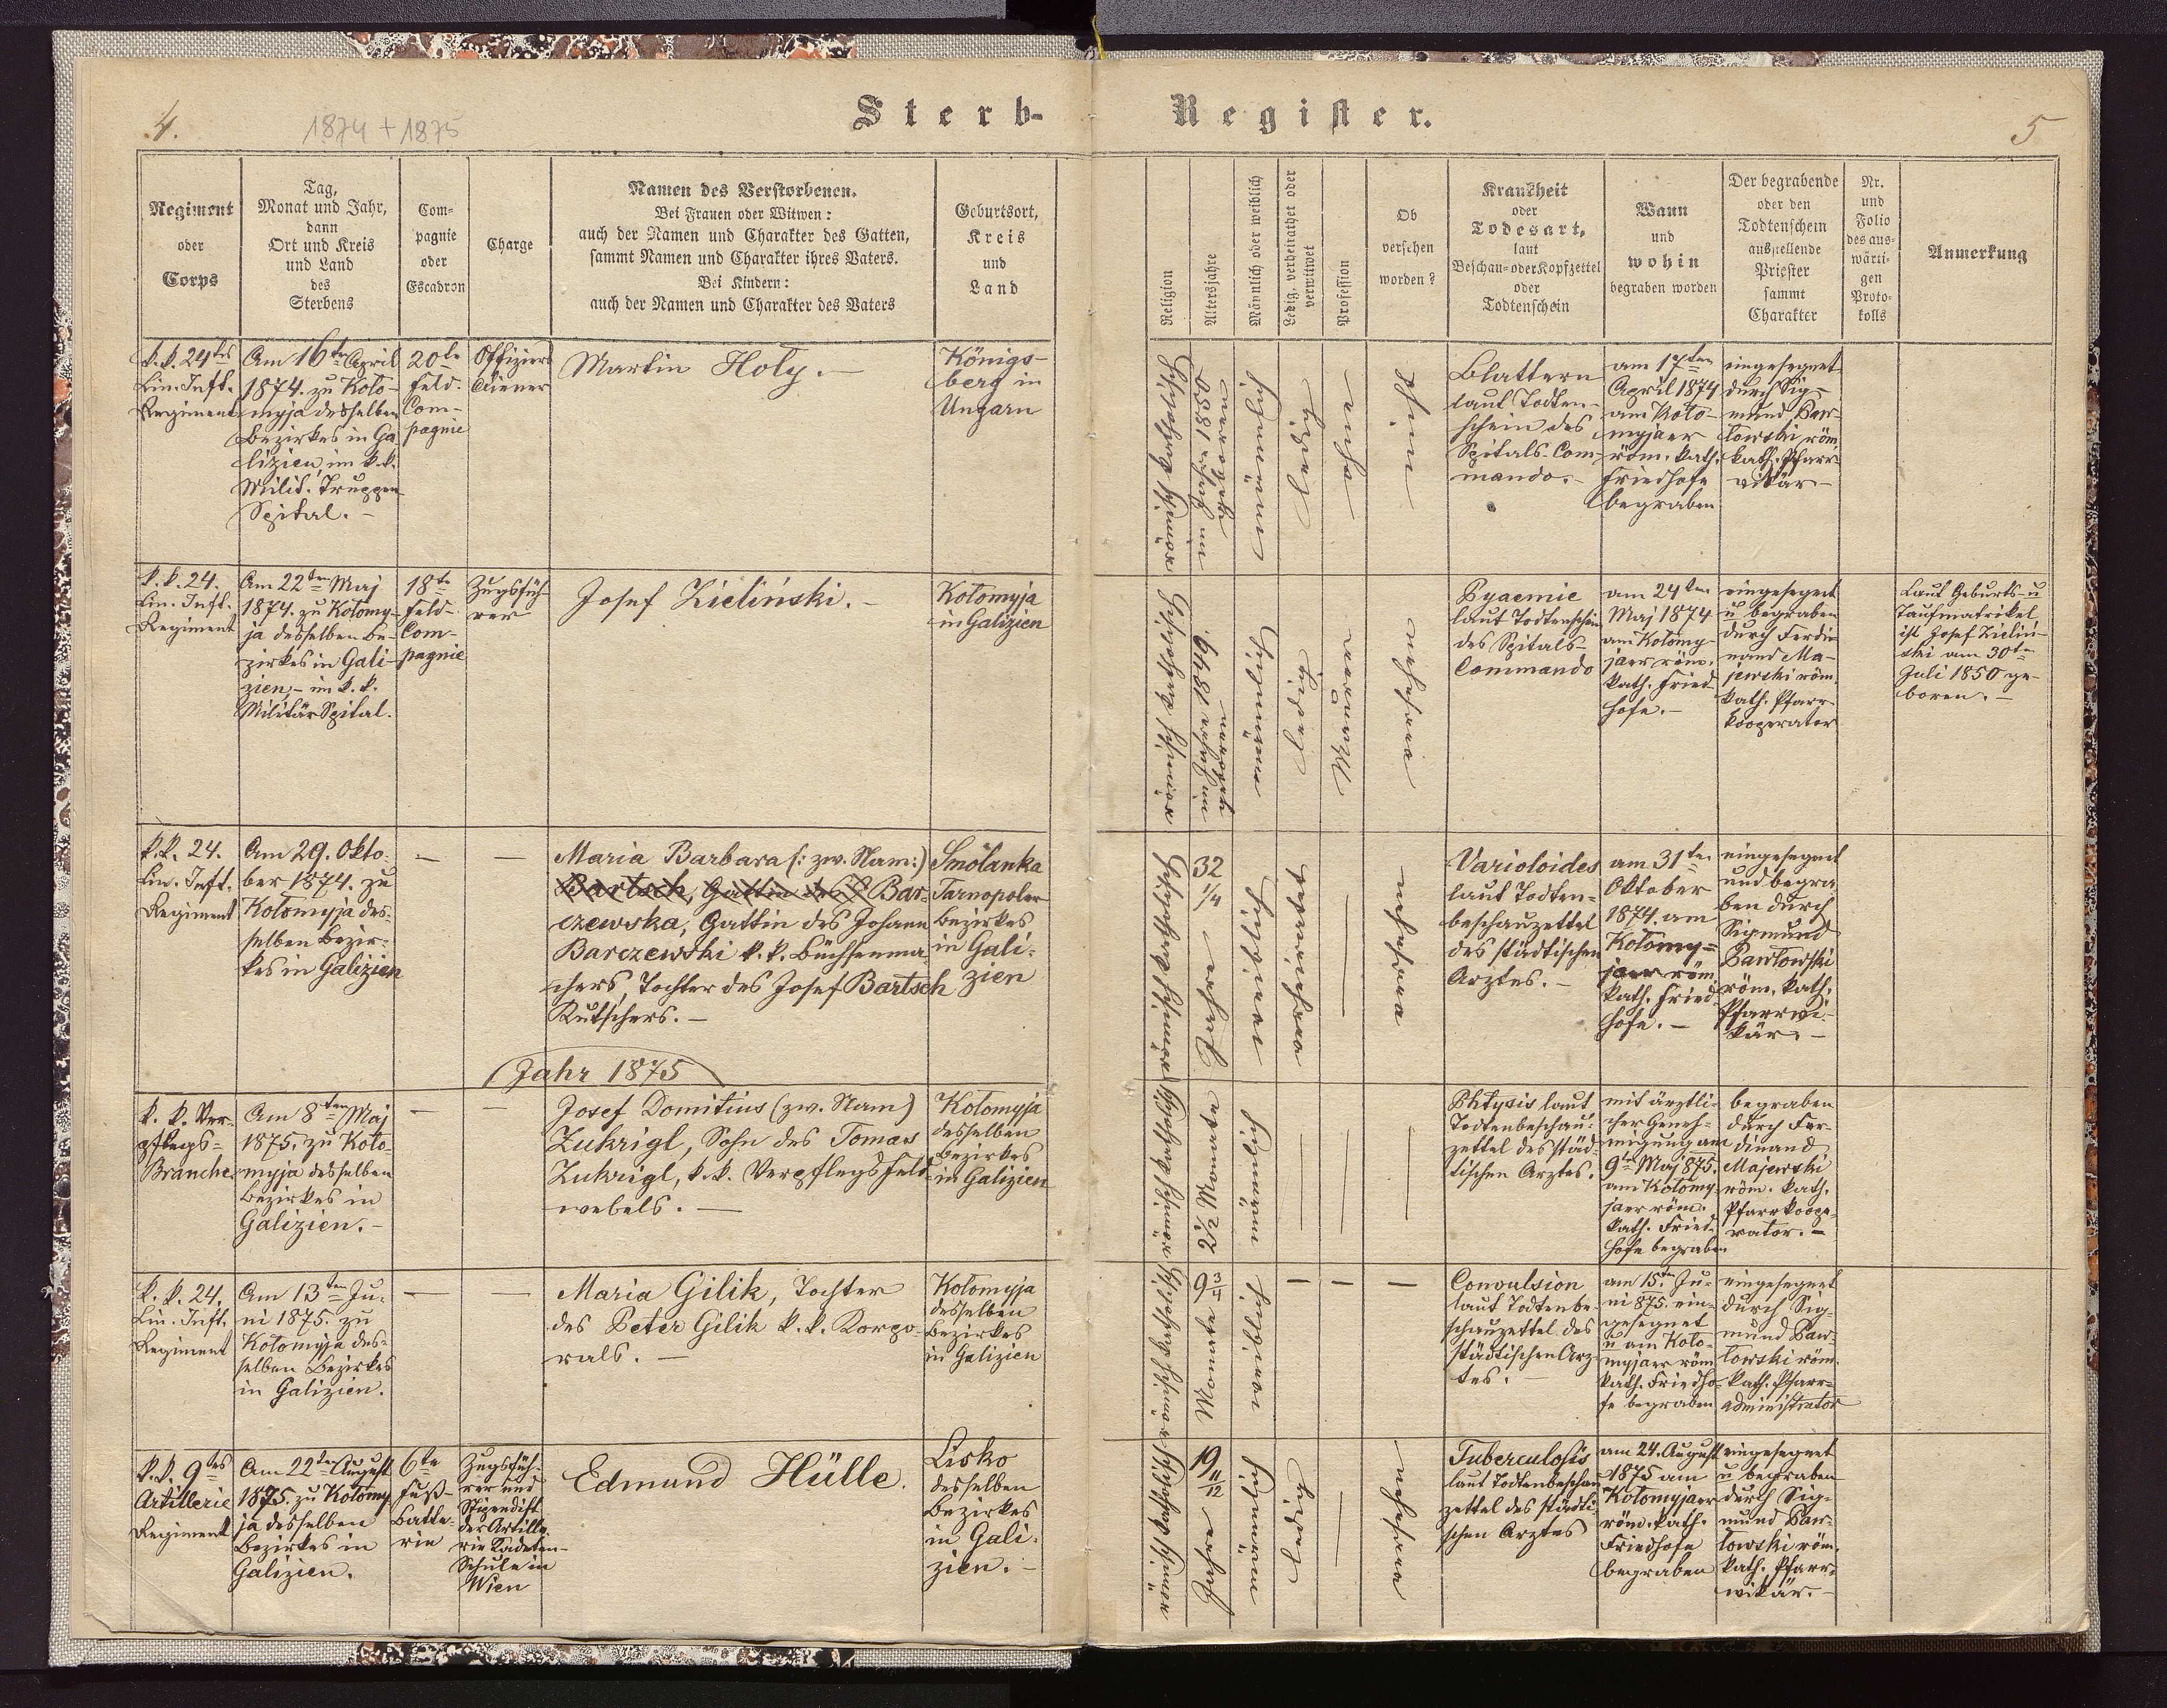 4.
1874 + 1875
Sterb-
Register.
5
Regiment
oder
Corps
Tag,
Monat und Jahr,
dann
Ort und Kreis
und Land
des
Sterbens
Com-
pagnie
oder
Escadron
Charge
Namen des Verstorbenen.
Bei Frauen oder Witwen:
auch der Namen und Charakter des Gatten,
sammt Namen und Charakter ihres Vaters.
Bei Kindern:
auch der Namen und Charakter des Vaters
Geburtsort,
Kreis
und
Land
Religion
Altersjahre
Männlich oder weiblich
Ledig, verheirathet oder
verwitwet
Profession
Ob
versehen
worden?
Krankheit
oder
Todesart,
laut
Beschau- oder Kopfzettel
oder
Todtenschein
Wann
und
wohin
begraben worden
Der begrabende
oder den
Todtenschein
ausstellende
Priester
sammt
Charakter
Nr.
und
Folio
des aus-
wärti-
gen
Proto-
kolls
Anmerkung
k. k. 24tes
Lin. Inft.
Regiment
Am 16ten April
1874. zu Koło-
myja desselben
Bezirkes in Ga-
lizien, im k. k.
Milit. Truppen
Spital. –
20te
Feld-
Com-
pagnie
Offiziers
diener
Martin Holy. –
Königs-
berg in
Ungarn
römisch katholisch
im Jahre 1850
geboren
männlich
ledig
ohne
Blattern
laut Todten-
schein des
Spitals-Com-
mando. –
am 17ten
April 1874
am Koło-
myjaer
röm. kath.
Friedhofe
begraben
eingesegnet
durch Sig-
mund Paw-
łowski röm.
kath. Pfarr-
vikär –
k. k. 24.
Lin. Inft.
Regiment
Am 22ten Maj
1874. zu Kołomy-
ja desselben Be-
zirkes in Gali-
zien, – im k. k.
Militär Spital.
18te
Feld-
Com-
pagnie
Zugsfüh-
rer
Josef Zieliński. –
Kołomyja
in Galizien
römisch katholisch
im Jahre 1849
geboren
männlich
ledig
Maurer
versehen
Pyaemie
laut Todtenschein
des Spitals-
Commando
am 24ten
Maj 1874
am Kołomy-
jaer röm.
kath. Fried-
hofe. –
eingesegnet
u begraben
durch Ferdi-
nand Ma-
jewski röm.
kath. Pfarr-
kooperator
Laut Geburts- u
Taufmatrikel
ist Josef Zieliń-
ski am 30te
Juli 1850 ge-
boren. –
k. k. 24.
Lin. Inft.
Regiment
Am 29. Okto-
ber 1874. zu
Kołomyja des-
selben Bezir-
kes in Galizien
–
–
Maria Barbara (: zw. Nam:)
Bartsch, Gattin des J Bar-
czewska, Gattin des Johann
Barczewski k. k. Büchsenma-
chers, Tochter des Josef Bartsch
Kutschers. –
Smolanka
Tarnopoler
Bezirkes
in Gali-
zien
römisch katholisch
32
1/4
Jahre
weiblich
verheirathet
–
versehen
Varioloides
laut Todten-
beschauzettel
des städtischen
Arztes. –
am 31ten
Oktober
1874 am
Kołomy-
jaer röm
kath. Fried-
hofe. –
eingesegnet
und begra-
ben durch
Sigmund
Pawłowski
röm. kath.
Pfarrvi-
kär. –
Jahr 1875
k. k. Ver-
pflegs-
Branche.
Am 8ten Maj
1875. zu Koło-
myja desselben
Bezirkes in
Galizien. –
–
–
Josef Domitius (zw. Nam)
Zukrigl, Sohn des Tomas
Zukrigl, k. k. Verpflegs Feld-
webels. –
Kołomyja
desselben
Bezirkes
in Galizien
römisch katholisch
2 1/2 Monate
männlich
–
–
–
Phtysis laut
Todtenbeschau-
zettel des städ-
tischen Arztes.
mit ärztli-
cher Geneh-
migung am
9te Maj 875.
am Kołomy-
jaer röm.
kath. Fried-
hofe begraben
begraben
durch Fer-
dinand
Majewski
röm. kath.
Pfarrkoope-
rator. –
k. k. 24.
Lin. Inft.
Regiment
Am 13ten Ju-
ni 1875. zu
Kołomyja des-
selben Bezirkes
in Galizien.
–
–
Maria Gilik, Tochter
des Peter Gilik k. k. Korpo-
rals. –
Kołomyja
desselben
Bezirkes
in Galizien
römisch katholisch
9 3/4
Monate
weiblich
–
–
–
Convulsion
laut Todtenbe-
schauzettel des
städtischen Arz-
tes. –
am 15ten Ju-
ni 875. ein-
gesegnet
u am Koło-
myjaer röm
kath. Friedho-
fe begraben
eingesegnet
durch Sig-
mund Paw-
łowski röm.
kath. Pfarr-
administrator
k. k. 9tes
Artillerie
Regiment
Am 22ten August
1875. zu Kołomy
ja desselben
Bezirkes in
Galizien.
6te
Fuß-
Batte-
rie
Zugsfüh-
rer und
Stipendist
der Artille-
rie Kadeten-
Schule in
Wien
Edmund Hülle.
Lisko
desselben
Bezirkes
in Gali-
zien. –
römisch katholisch
19
11/12
Jahre
männlich
ledig
–
versehen
Tuberculosis
laut Todtenbeschau
zettel des städti-
schen Arztes
am 24. August
1875 am
Kołomyjaer
röm. kath.
Friedhofe
begraben
eingesegnet
u begraben
durch Sig-
mund Paw-
łowski röm.
kath. Pfarr-
vikär. –